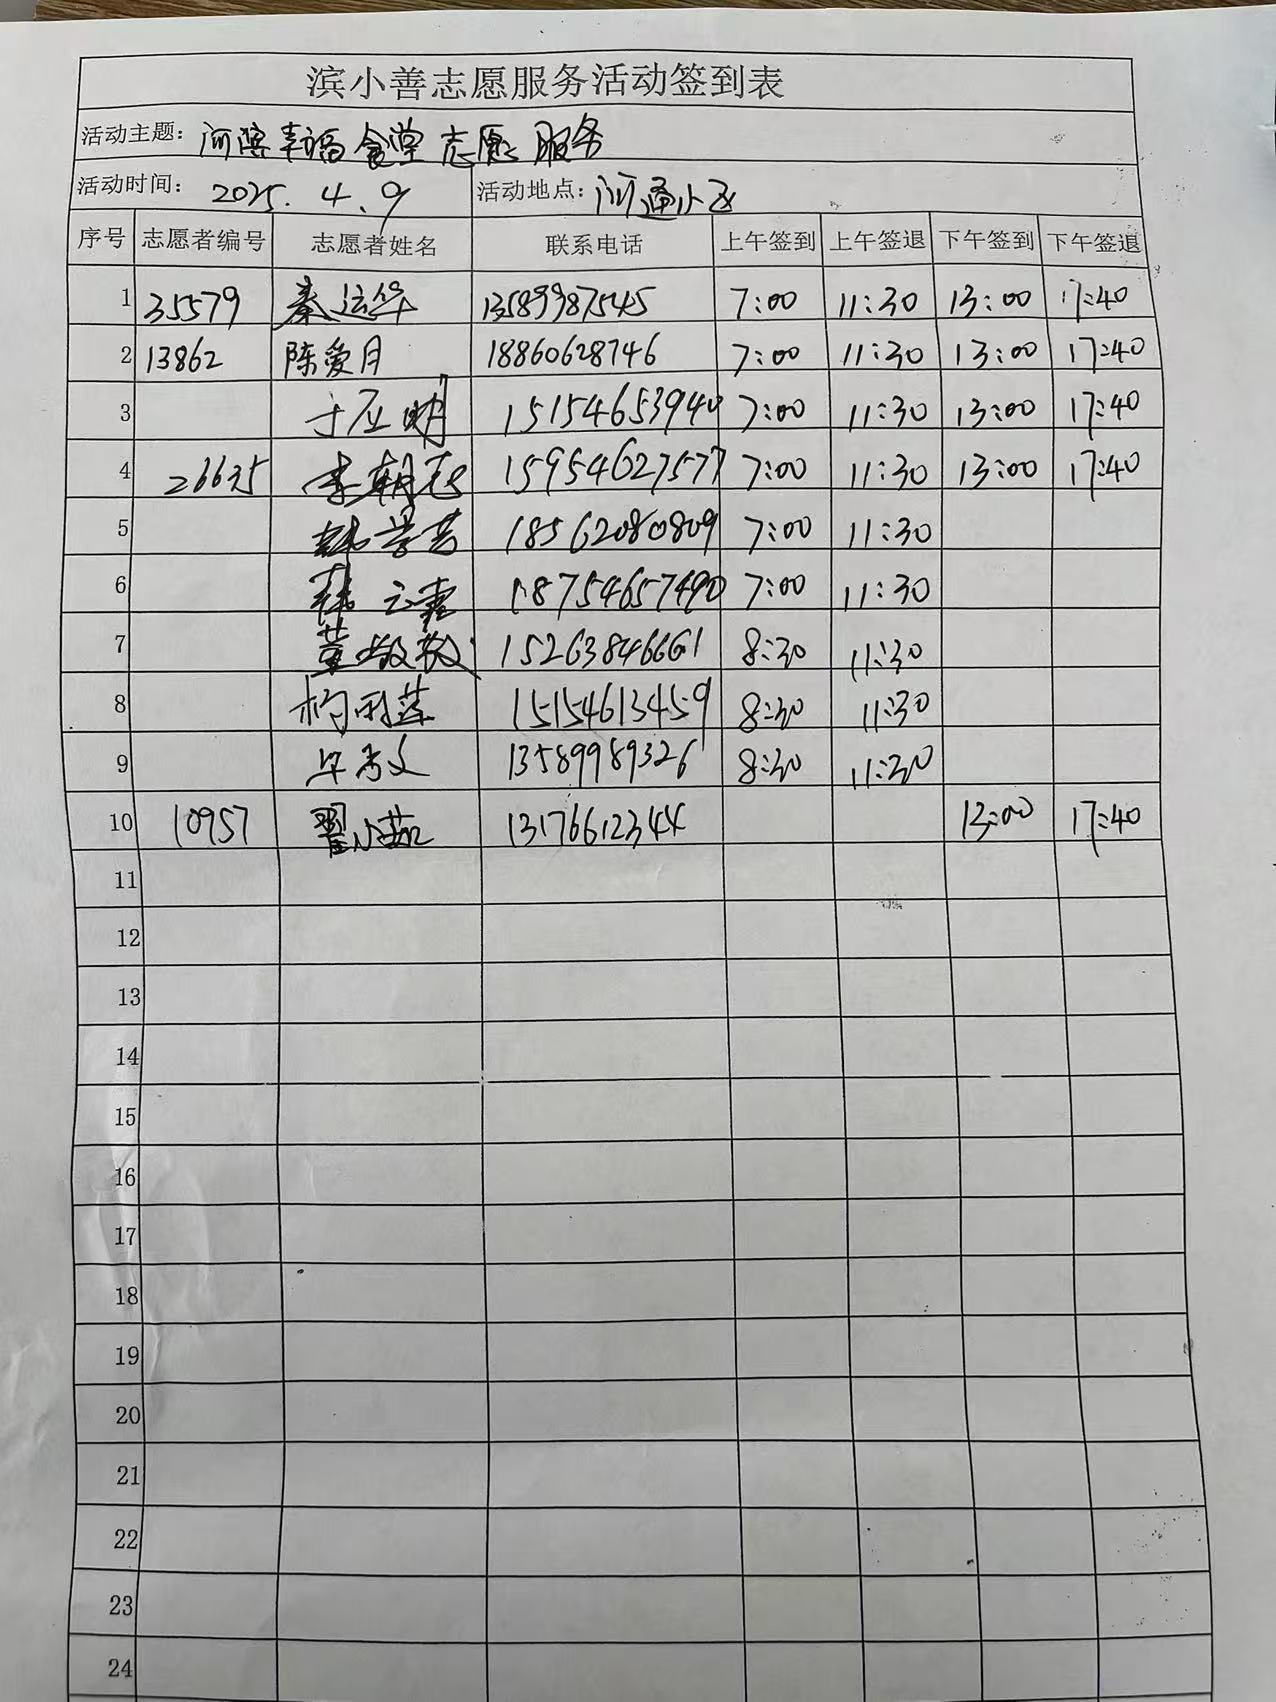 滨小善志愿服务活动签到表
活动主题: 河滨幸福食堂志愿服务
活动时间: 2025.4.9 活动地点: 河通小区
序号 志愿者编号 志愿者姓名 联系电话 上午签到 上午签退 下午签到 下午签退
1 35579 秦运华 13589987545 7:00 11:30 13:00 17:40
2 13862 陈爱月 18860628746 7:00 11:30 13:00 17:40
3 于应明 15154653940 7:00 11:30 13:00 17:40
4 26635 李朝志 15954627577 7:00 11:30 13:00 17:40
5 18562080809 7:00 11:30
6 韩云霞 18754657490 7:00 11:30
7 董敬敬 15263846661 8:30 11:30
8 15154613459 8:30 11:30
9 毕秀文 13589989326 8:30 11:30
10 10957 翟小茹 13176612344 13:00 17:40
11
12
13
14
15
16
17
18
19
20
21
22
23
24